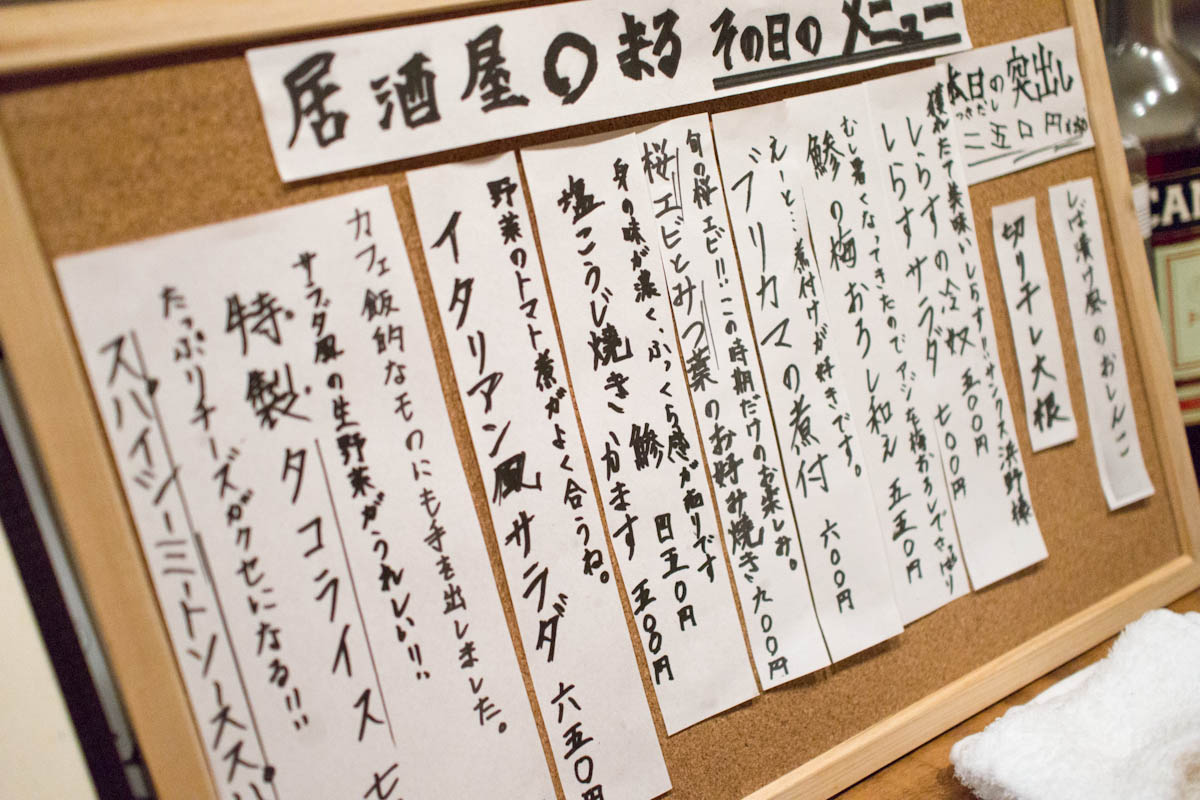 居酒屋のまる その日のメニュー
本日の突出し
つきだし
二五〇円
しば漬け風のおしんこ
切り干し大根
獲れたて美味いしらす!!サンクス浜野様
しらすの冷奴 五〇〇円
しらすサラダ 七〇〇円
むし暑くなってきたのでアジを梅おろしでさっぱり
鯵の梅おろし和え 五五〇円
えーと…煮付けが好きです。
ブリカマの煮付 六〇〇円
旬の桜エビ!!この時期だけのお楽しみ。
桜エビとみつ葉のお好み焼き 九〇〇円
身の味が濃く、ふっくら感が有りです
塩こうじ焼き、鯵 四五〇円
かます 五〇〇円
野菜のトマト煮がよく合うね。
イタリアン風サラダ 六五〇円
カフェ飯的なモのにも手を出しました。
サラダ風の生野菜がうれしい!!
特製タコライス 七
たっぷりチーズがクセになる!!
スパイシーミートソーススパ
CA